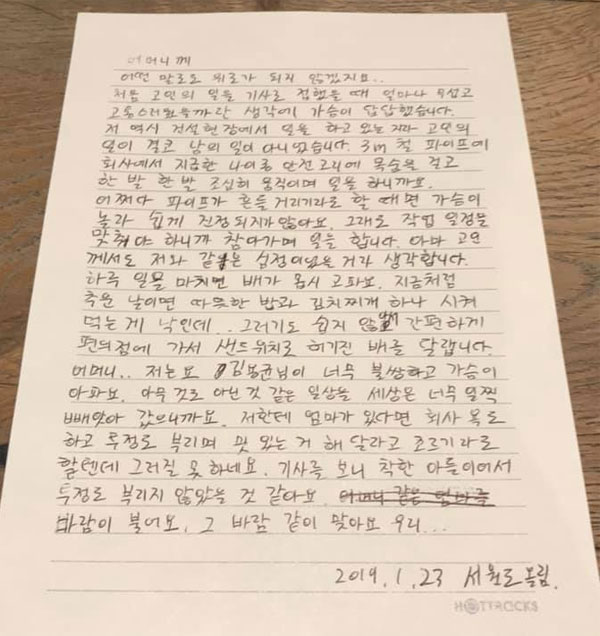 어머니께
어떤 말로도 위로가 되지 않겠지요..
처음 고인의 일을 기사로 접했을 때 얼마나 무섭고
고통스러웠을까란 생각에 가슴이 답답했습니다.
저 역시 건설현장에서 일을 하고 있는 지라 고인의
일이 결코 남의 일이 아니었습니다. 3m 철 파이프에
회사에서 지급한 나이롱 안전고리에 목숨을 걸고
한 발 한 발 조심히 움직이며 일을 하니까요.
어쩌다 파이프가 흔들 거리기라도 할 때면 가슴이
놀라 쉽게 진정되지가 않아요. 그래도 작업 일정을
맞춰야 하니까 참아가며 일을 합니다. 아마 고인
께서도 저와 같은 심정이었을 거라 생각합니다.
하루 일을 마치면 배가 몹시 고파요. 지금처럼
추운 날이면 따뜻한 밥과 김치찌개 하나 시켜
먹는게 낙인데.. 그러기도 쉽지 않 간편하게
편의점에 가서 샌드위치로 허기진 배를 달랩니다.
어머니.. 저는요 김용균님이 너무 불쌍하고 가슴이
아파요. 아무 것도 아닌 것 같은 일상을 세상은 너무 일찍
빼앗아 갔으니까요. 저한테 엄마가 있다면 회사 욕도
하고 투정도 부리며 맛 있는 거 해 달라고 조르기라도
할텐데 그러질 못 하네요. 기사를 보니 착한 아들이어서
투정도 부리지 않았을 것 같아요.
바람이 불어요. 그 바람 같이 맞아요 우리...
2019. 1. 23 드림.
HOTTRACKS